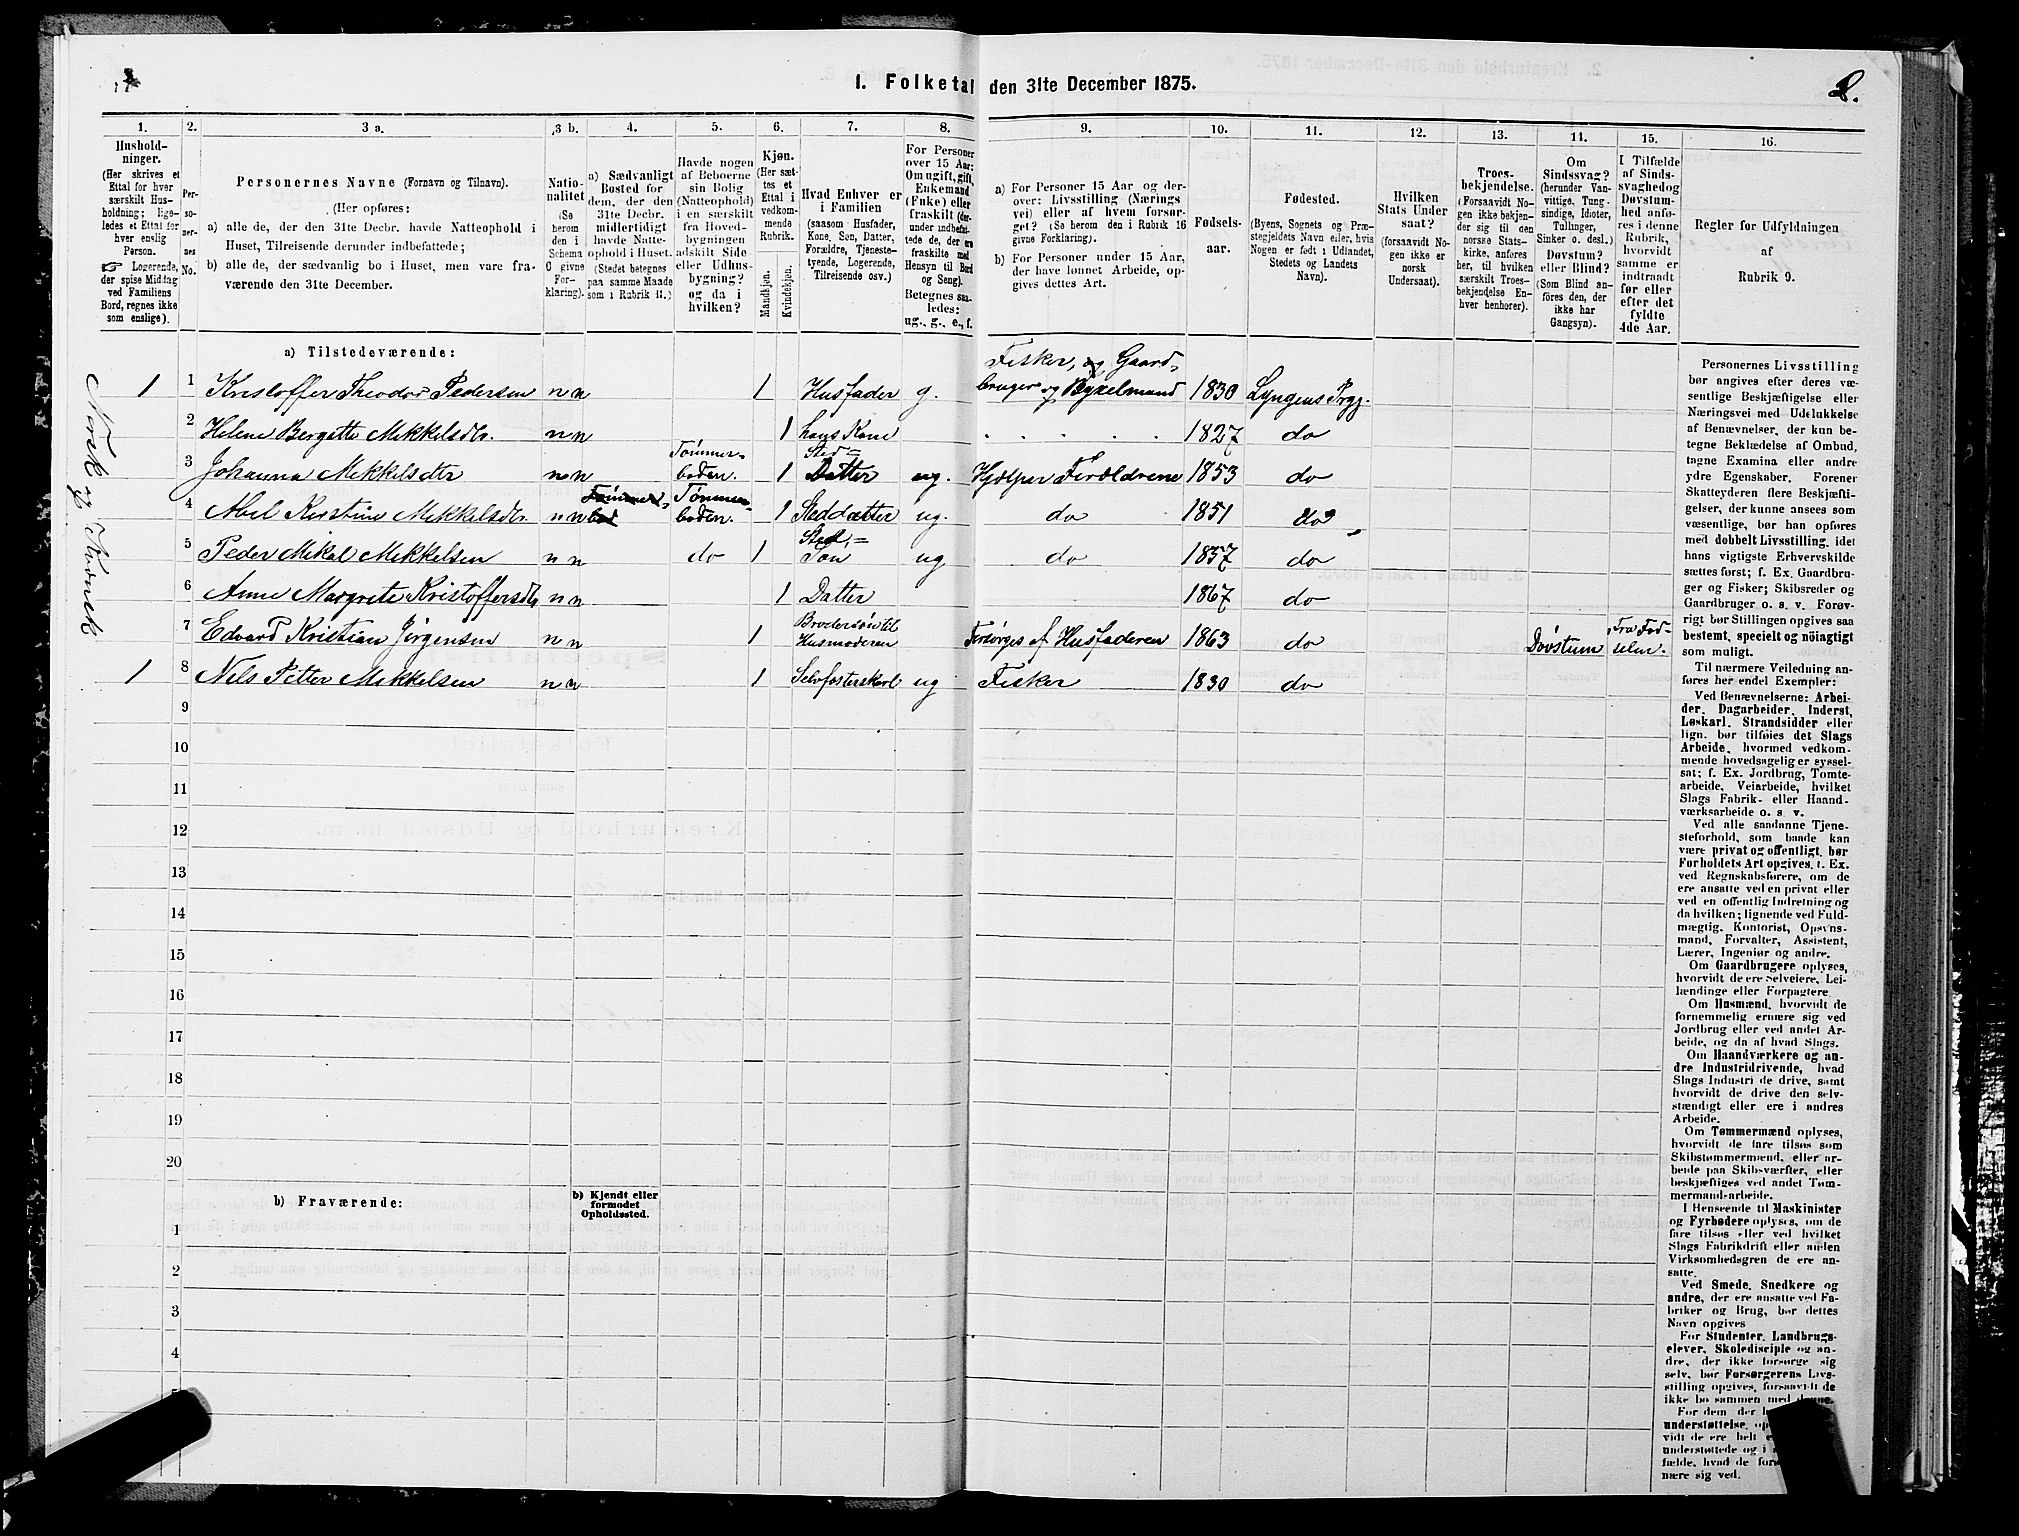 I. Folketal den 31te December 1875.
2.
1. 2. 3 a. 3 b. 4. 5. 6. 7. 8. 9. 10. 11. 12. 13. 14. 15. 16.
Hushold-
ninger.
(Her skrives et
Ettal for hver
særskilt Hus-
holdning; lige-
ledes et Ettal for
hver enslig
Person.
☞ Logerende,
der spise Middag
ved Familiens
Bord, regnes ikke
som enslige).
Per-
so-
ner-
nes
No.
Personernes Navne (Fornavn og Tilnavn).
(Her opføres:
a) alle de, der den 31te Decbr. havde Natteophold i
Huset, Tilreisende derunder indbefattede;
b) alle de, der sædvanlig bo i Huset, men vare fra-
værende den 31te December.
Natio-
nalitet
(Se
herom
den i
Schema
0 givne
For-
klaring).
a) Sædvanligt
Bosted for
dem, der den
31te Decbr.
midlertidigt
havde Natte-
ophold i Huset.
(Stedet betegnes
paa samme Maade
som i Rubrik 11.)
Havde nogen
af Beboerne
sin Bolig
(Natteophold)
i en særskilt
fra Hoved-
bygningen
adskilt Side-
eller Udhus-
bygning?
og da i
hvilken?
Kjøn.
(Her sæt-
tes et
Ettal i
vedkom-
mende
Rubrik.
Mandkjøn.
Kvindekjøn.
Hvad Enhver er
i Familien
(saasom Husfader,
Kone, Søn, Datter,
Forældre, Tjeneste-
tyende, Logerende,
Tilreisende osv.)
For Personer
over 15 Aar:
Om ugift, gift,
Enkemand
(Enke) eller
fraskilt (der-
under indbefat-
tede de, der ere
fraskilte med
Hensyn til Bord
og Seng).
Betegnes saa-
ledes:
ug., g., e., f.
a) For Personer 15 Aar og der-
over: Livsstilling (Nærings
vei) eller af hvem forsør-
get? (Se herom den i Rubrik 16
givne Forklaring).
b) For Personer under 15 Aar,
der have lønnet Arbeide, op-
gives dettes Art.
Fødsels-
aar.
Fødested.
(Byens, Sognets og Præ-
stegjeldets Navn eller, hvis
Nogen er født i Udlandet,
Stedets og Landets
Navn).
Hvilken
Stats Under
saat?
(forsaavidt No-
gen ikke er
norsk
Undersaat).
Troes-
bekjendelse.
(Forsaavidt No-
gen ikke bekjen-
der sig til den
norske Stats-
kirke, anføres
her, til hvilken
særskilt Troes-
bekjendelse En-
hver henhorer).
Om
Sindssvag?
(herunder Van-
vittige, Tung-
sindige, Idioter,
Tullinger,
Sinker o. desl.)
Døvstum?
eller Blind?
(Som Blind an-
føres den, der
ikke har
Gangsyn).
I Tilfælde
af Sinds-
svaghed og
Døvstum-
hed anfø-
res i denne
Rubrik,
hvorvidt
samme er
indtraadt
før eller
efter det
fyldte
4de Aar.
Regler for Udfyldningen
af
Rubrik 9.
a) Tilstedeværende:
Norsk og Kvænsk
1 1 Kristoffer Theodor Pedersen n n 1 Husfader g. Fisker, og Gaard-
bruger og Byxelmand 1830 Lyngens Prgj.
2 Helene Bergitte Mikkelsdtr. n n 1 hans Kone 1827 do
3 Johanna Mikkelsdtr n n Tømmer-
boden. 1 Sted=
Datter ug. Hjælper Forældrene 1853 do
4 Abel Kirstine Mikkelsdtr. n n Tømmer-
boden. 1 Steddatter ug. do 1851 do
5 Peder Mikal Mikkelsen n n do 1 Sted=
Søn ug do 1857 do
6 Anne Margrete Kristoffersdtr n n 1 Datter 1867 do
7 Edvard Kristian Jørgensen n n 1 Brodersøn til
Husmoderen Forsørges af Husfaderen 1863 do Døvstum Fra Fød-
selen.
1 8 Nels Petter Mikkelsen n n 1 Selvfosterskarl ug Fisker 1830 do
9
10
11
12
13
14
15
16
17
18
19
20
b) Fraværende:
b) Kjendt eller
formodet
Opholdssted.
1
2
3
4
5
Personernes Livsstilling
bør angives efter deres væ-
sentlige Beskjæftigelse eller
Næringsvei med Udelukkelse
af Benævnelser, der kun be-
tegne Beklædelse af Ombud,
tagne Examina eller andre
ydre Egenskaber. Forener
Skatteyderen flere Beskjæfti-
gelser, der kunne ansees som
væsentlige, bør han opføres
med dobbelt Livsstilling, idet
hans vigtigste Erhvervskilde
sættes først; f. Ex. Gaardbru-
ger og Fisker; Skibsreder og
Gaardbruger o. s. v. Forøv-
rigt bør Stillingen opgives saa
bestemt, specielt og nøiagtigt
som muligt.
Til nærmere Veiledning an-
føres her endel Exempler:
Ved Benævnelserne: Arbei-
der, Dagarbeider, Inderst,
Løskarl, Strandsidder eller
lign. bør tilføies det Slags
Arbeide, hvormed vedkom-
mende hovedsagelig er syssel-
sat; f. Ex. Jordbrug, Tomte-
arbeide, Veiarbeide, hvilket
Slags Fabrik- eller Haand-
værksarbeide o. s. v.
Ved alle saadanne Tjene-
steforhold, som baade kan
være privat og offentligt, bør
Forholdets Art opgives, f. Ex.
ved Regnskabsførere, om de
ere ansatte ved en privat eller
ved en offentlig Indretning og
da hvilken; lignende ved Fuld-
mægtig, Kontorist, Opsyns-
mand, Forvalter, Assistent,
Lærer, Ingeniør og andre.
Om Gaardbrugere oplyses,
hvorvidt de ere Selveiere, Lei-
lændinge eller Forpagtere.
Om Husmænd, hvorvidt de
fornemmelig ernære sig ved
Jordbrug eller ved andet Ar-
beide, og da af hvad Slags.
Om Haandværkere og an-
dre Industridrivende, hvad
Slags Industri de drive, samt
hvorvidt de drive den selv-
stændigt eller ere i andres
Arbeide.
Om Tømmermænd oplyses,
hvorvidt de fare tilsøs som
Skibstømmermænd, eller ar-
beide paa Skibsværfter, eller
beskjæftiges ved andet Tøm-
mermandarbeide.
I Henseende til Maskinister
og Fyrbødere oplyses, om de
fare tilsøs eller ved hvilket
Slags Fabrikdrift eller anden
Virksomhedsgren de ere an-
satte.
Ved Smede, Snedkere og
andre, der ere ansatte ved Fa-
briker og Brug, bør dettes
Navn opgives
For Studenter, Landbrugs-
elever, Skoledisciple og an-
dre, der ikke forsørge sig
selv, bør Forsørgerens Livs-
stilling opgives, forsaavidt de
ikke bo sammen med denne.
For dem, der
understøttelse,
vidt de ere helt
understøttede og i
fælde, hvad de
nære sig ved.